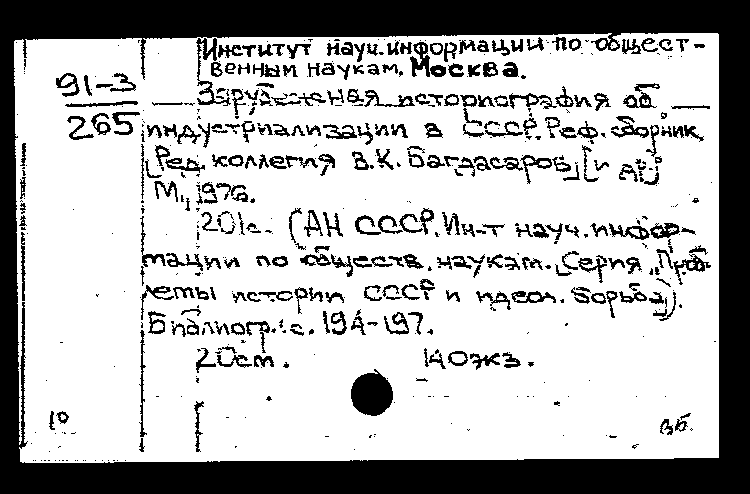 Институт науч.информации по общест-
венным наукам, Москва.
91-3
265
Зарубежная историография об
индустриализации в СССР. Реф. сборник.
[Ред. коллегия В.К. Багдасаров] [и др.]
М., 1976.
201с. (АН СССР. Ин-т науч. инфор-
мации по обществ. наукам. Серия "Проб-
лемы истории СССР и идеол. борьба).
Библиогр.: с. 194-197.
20см. 140экз.
10
ВБ.